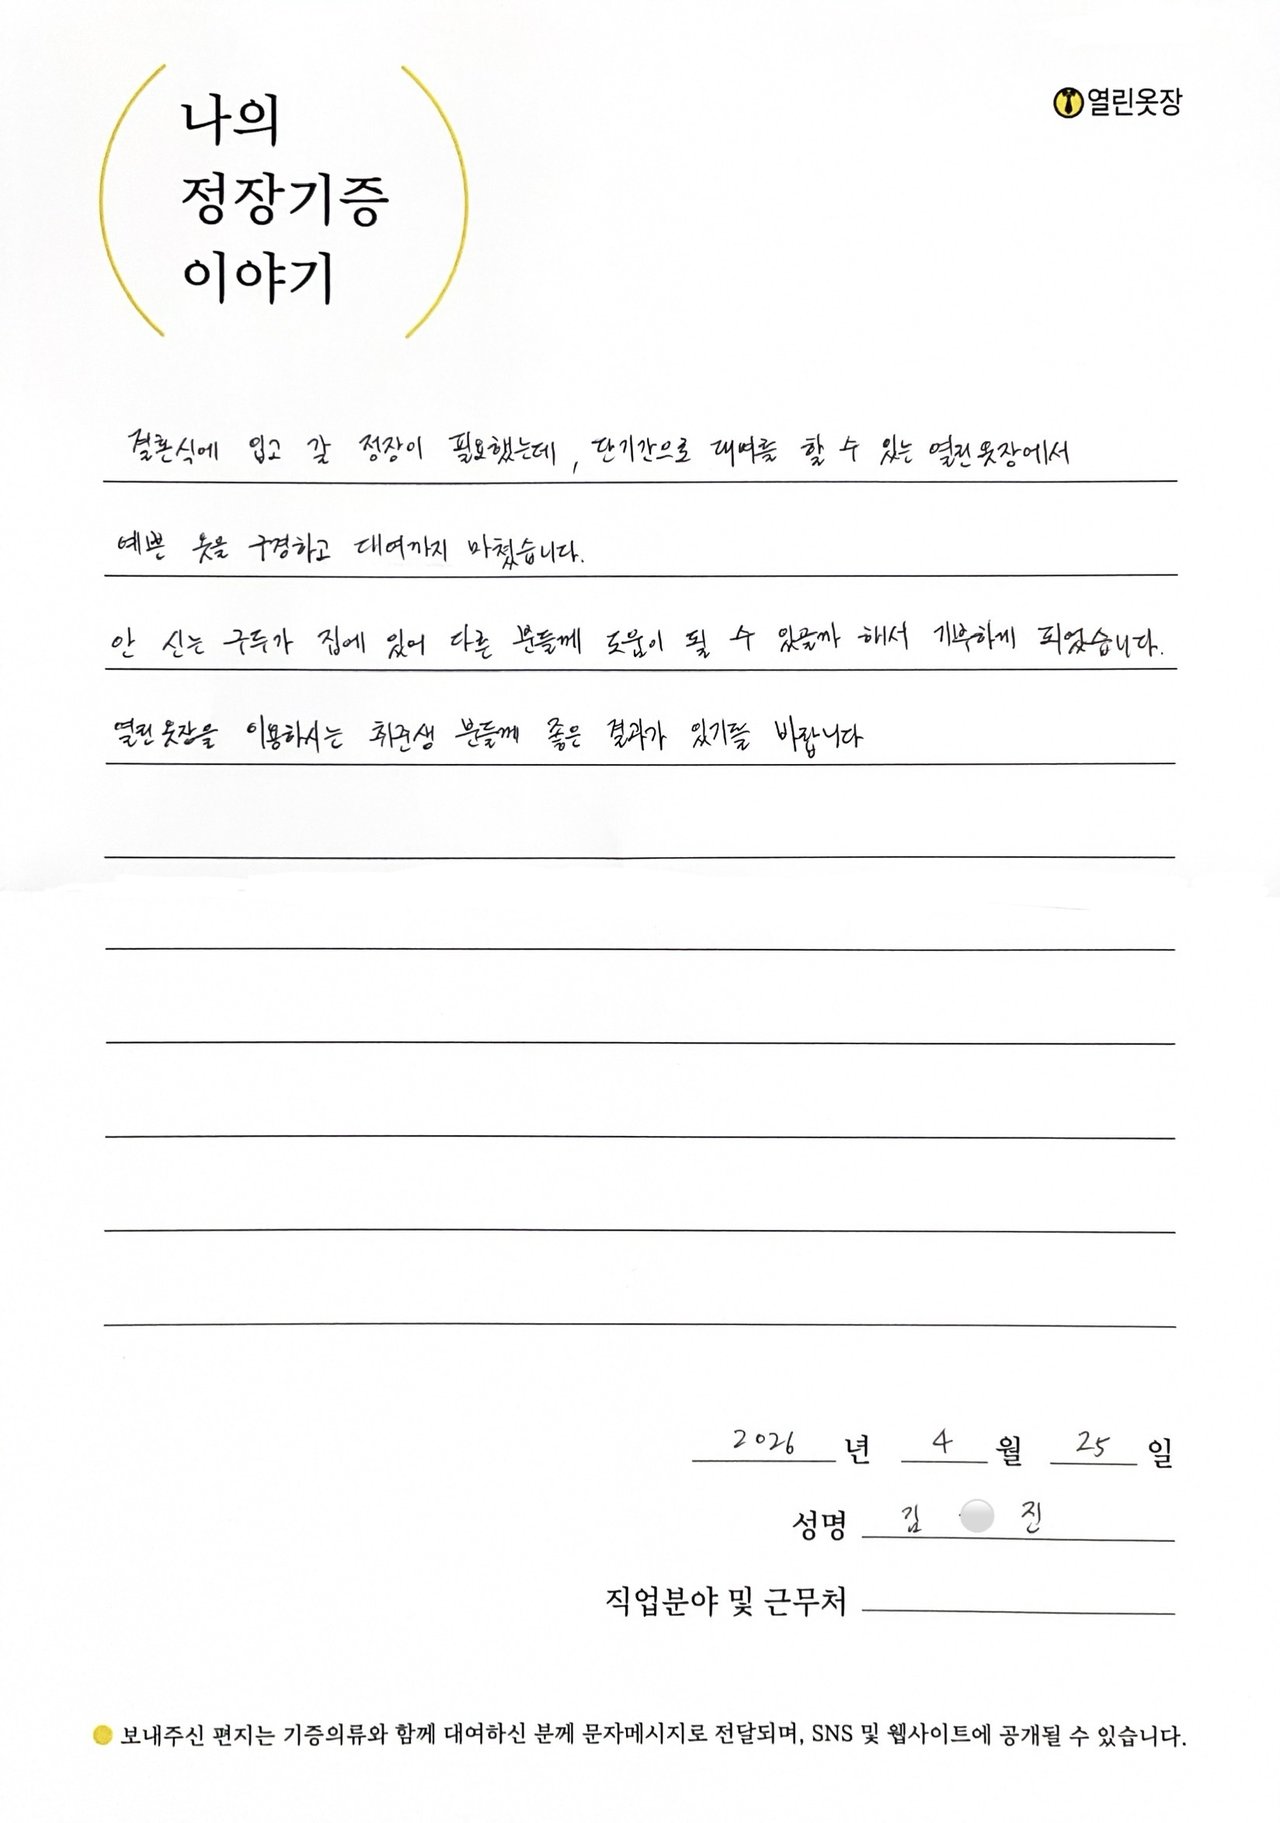 나의
정장기증
이야기
열린옷장
결혼식에 입고 갈 정장이 필요했는데, 단기간으로 대여를 할 수 있는 열린옷장에서
예쁜 옷을 구경하고 대여까지 마쳤습니다.
안 신는 구두가 집에 있어 다른 분들께 도움이 될 수 있을까 해서 기부하게 되었습니다.
열린옷장을 이용하시는 취준생 분들께 좋은 결과가 있기를 바랍니다
2026 년 4 월 25 일
성명 김 진
직업분야 및 근무처
보내주신 편지는 기증의류와 함께 대여하신 분께 문자메시지로 전달되며, SNS 및 웹사이트에 공개될 수 있습니다.